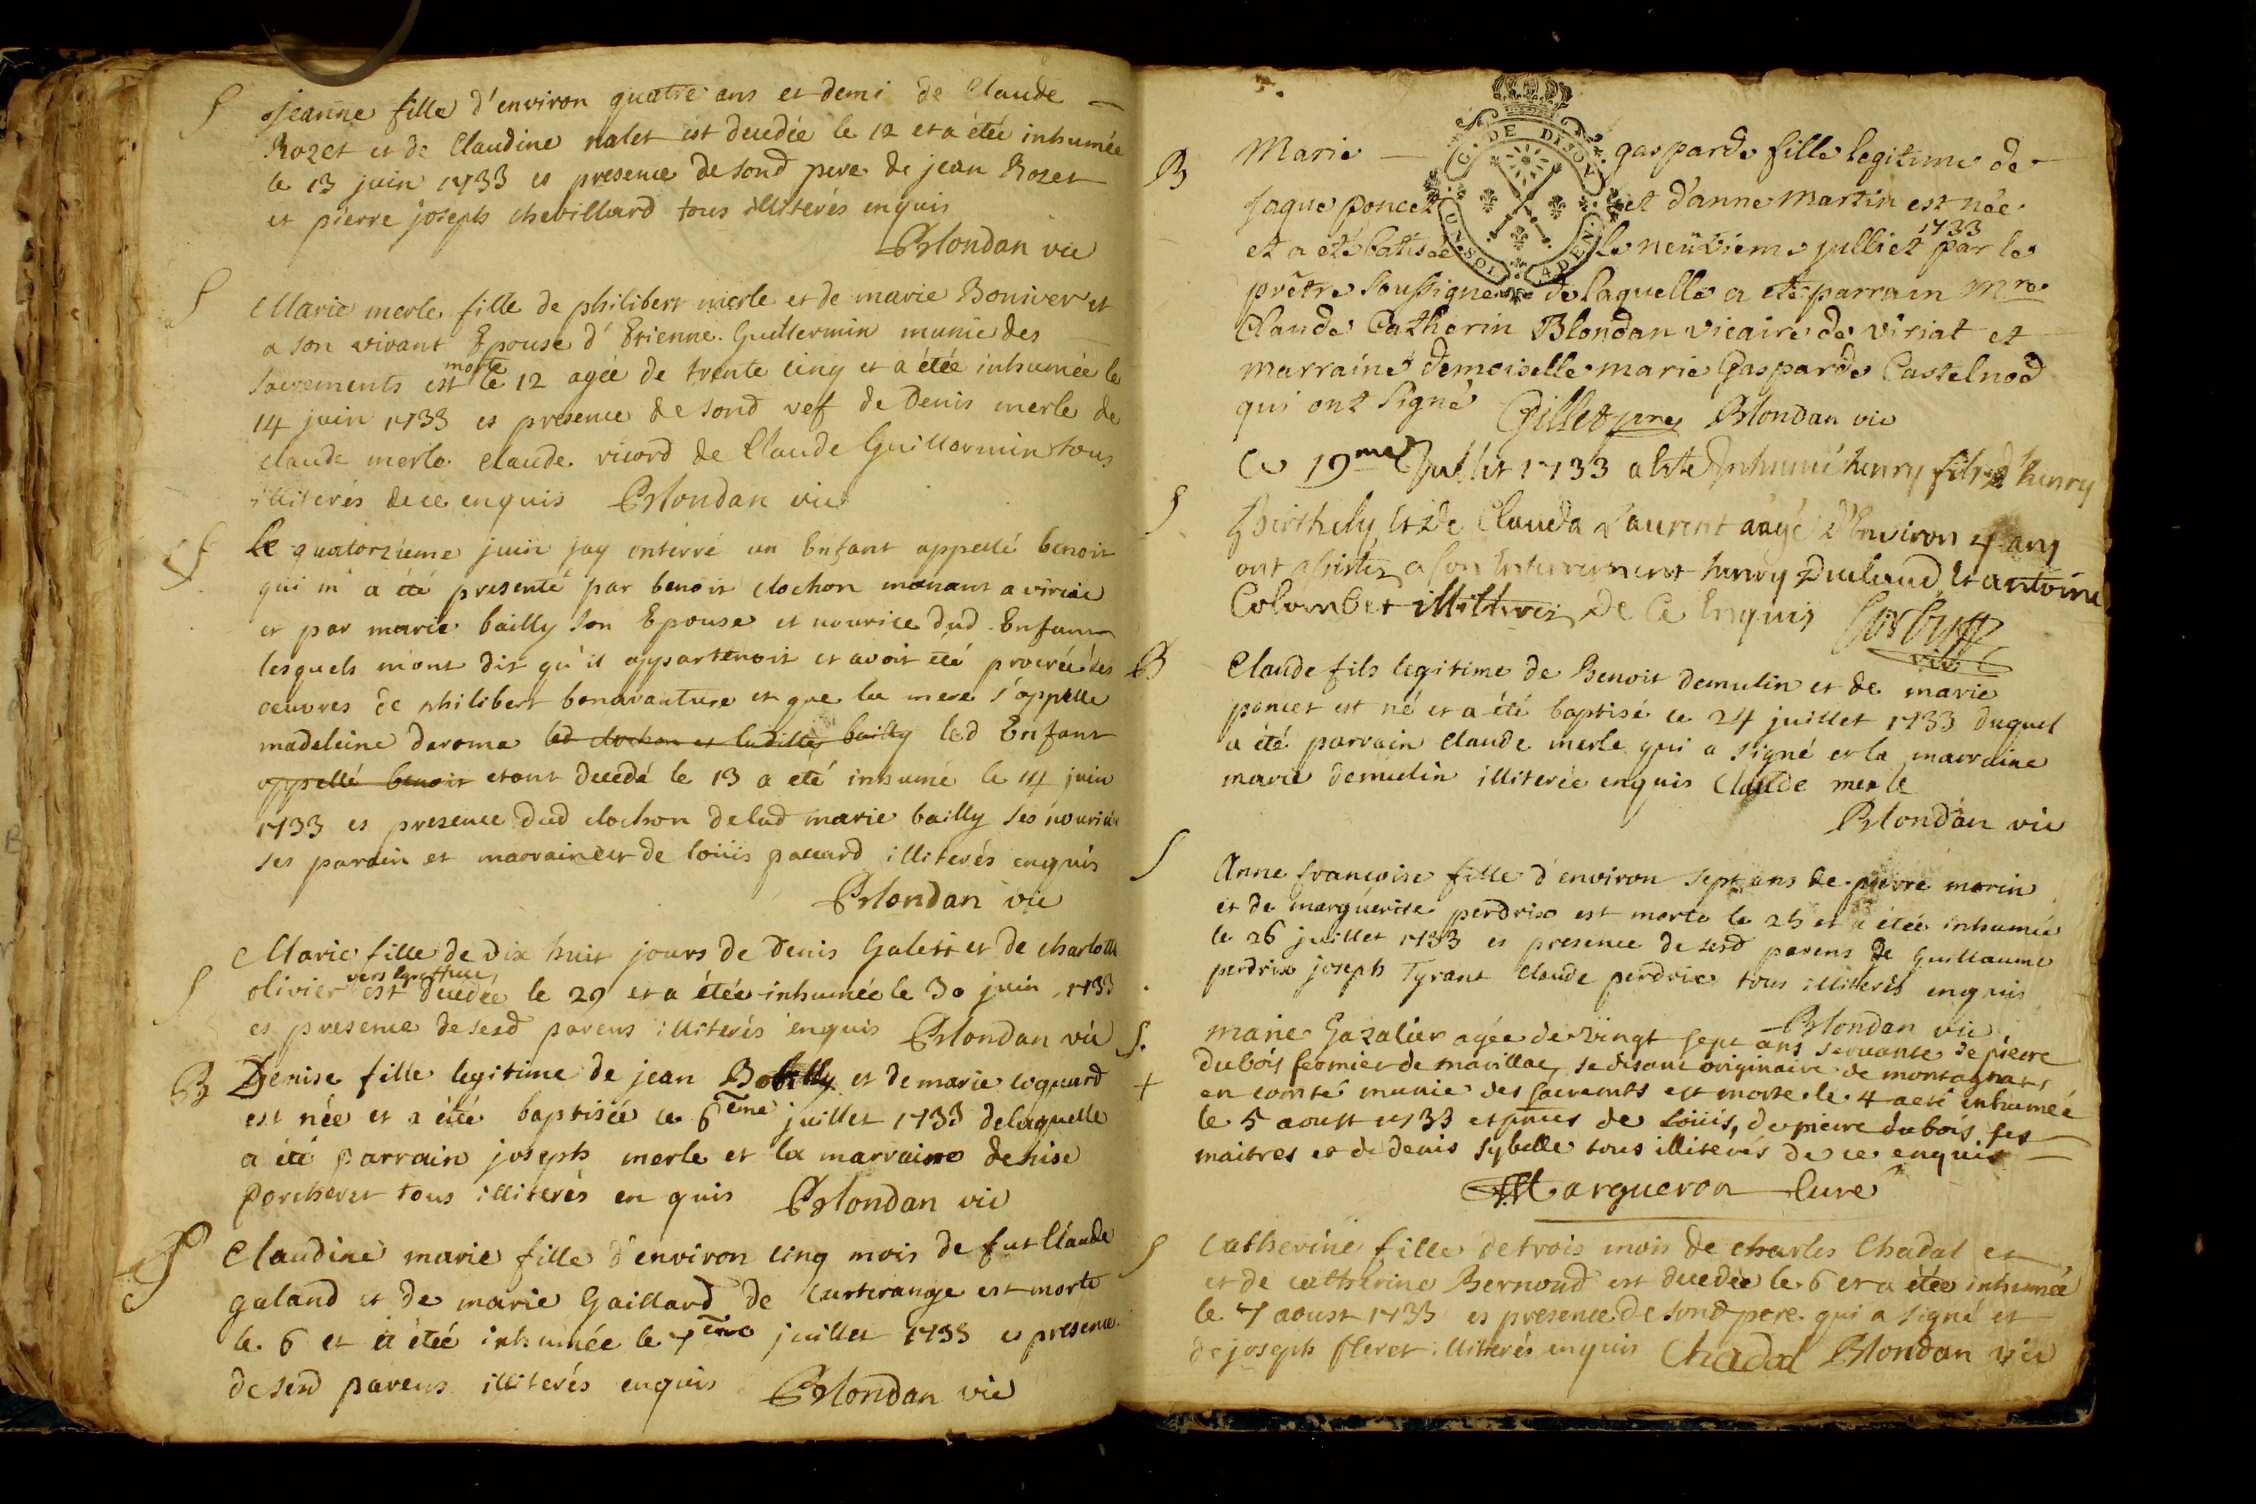 S Jeanne fille d'environ quatre ans et demi de Claude
Rozet et de Claudine nalet est decedée le 12 et a étée inhumée
le 13 juin 1733 es presence de sond pere de jean Rozet
et pierre joseph chevillard tous illiterés enquis
Blondan vic
S Marie merle fille de philibert merle et de marie Boniver et
a son vivant Epouse d'Etienne Guillermin munie des
sacrements est morte le 12 agée de trente cinq et a étée inhumée le
14 juin 1733 es presence de sond vef de Denis merle de
claude merle claude ricord de Claude Guillarmin tous
illiterés de ce enquis Blondan vic
S Le quatorzieme juin jay enterré un Enfant appellé benoit
qui m'a été presenté par benoit clochon manant a viriac
et par marie bailly son Epouse et nourice dud Enfant
lesquels mont dit qu'il appartenoit et avoit eté procréé des
oeuvres de philibert bonavanture et que la mere s'appelle
madeleine daroma led clochon et laditte bailly led Enfant
appellé benoit etant decedé le 13 a été inhumé le 14 juin
1733 es presence dud clochon de lad marie bailly ses nourici
ses parain et marraine et de loüis pacard illiterés enquis
Blondan vic
S Marie fille de Dix huit jours de Denis Galett et de charlotte
olivier est decedée le 29 et a étée inhumée le 30 juin 1733
es presence de sesd parens illiterés enquis Blondan vic
B Denise fille legitime de jean Bobilly et de marie loquard
est née et a été baptisée ce 6eme juillet 1733 delaquelle
a été parrain joseph merle et la marraine denise
porcheret tous illiterés en quis Blondan vic
S Claudine marie fille d'environ cinq mois de fut Claude
galand et de marie Gaillard de Curtirange est morte
le 6 et a étée inhumée le 7eme juillet 1733 es presence
de sesd parens illiterés enquis Blondan vic
G. DE DIJON
UN SOL 4 DEN
B Marie gasparde fille legitime de
Jaque poncet et d'anne Martin est née
et a eté batisée le neuvieme julliet 1733 par le
prêtre soussigne de laquelle a eté parrain mre
Claude Catherin Blondan vicaire de viriat et
marraine demoiselle marie Gasparde Castelnod
qui ont signé Gillet pre Blondan vic
S Ce 19me Juillet 1733 a este Inhumé henry fils d'henry
Berthely et de Clauda Laurent aagé d'Environ 4 ans
ont assistez a son Enterrement henry Duclaud et antoine
Colombet illitterez de Ce Enquis
vic
B Claude fils legitime de Benoit demulin et de marie
poncet est né et a été baptisé ce 24 juillet 1733 duquel
a été parrain claude merle qui a signé et la marraine
marie demulin illiterée enquis Claude merle
Blondan vic
S Anne francoise fille d'environ sept ans de pierre morin
et de marguérite perdrix est morte le 25 et a étée inhumée
le 26 juillet 1733 es presence de sesd parens de Guillaume
perdrix joseph Tyrant claude perdrix tous illiterés enquis
Blondan vic
S. marie Gazalier agée de vingt sept ans servante de pierre
dubois fermier de marillac se disant originaire de montagna
+ en comté munie des sacremts est morte le 4 a eté inhumée
le 5 aoust 1733 es pnces de Loüis, de pierre dubois ses
maitres et de denis sybelle tous illiterés de ce enquis
Margueron Curé
S Catherine fille de trois mois de charles Chadal et
et de catherine Bernoud est decedée le 6 et a étée inhumée
le 7 aoust 1733 es presence de sond pere qui a signé et
de joseph fleret illiterés enquis Chadal Blondan vic